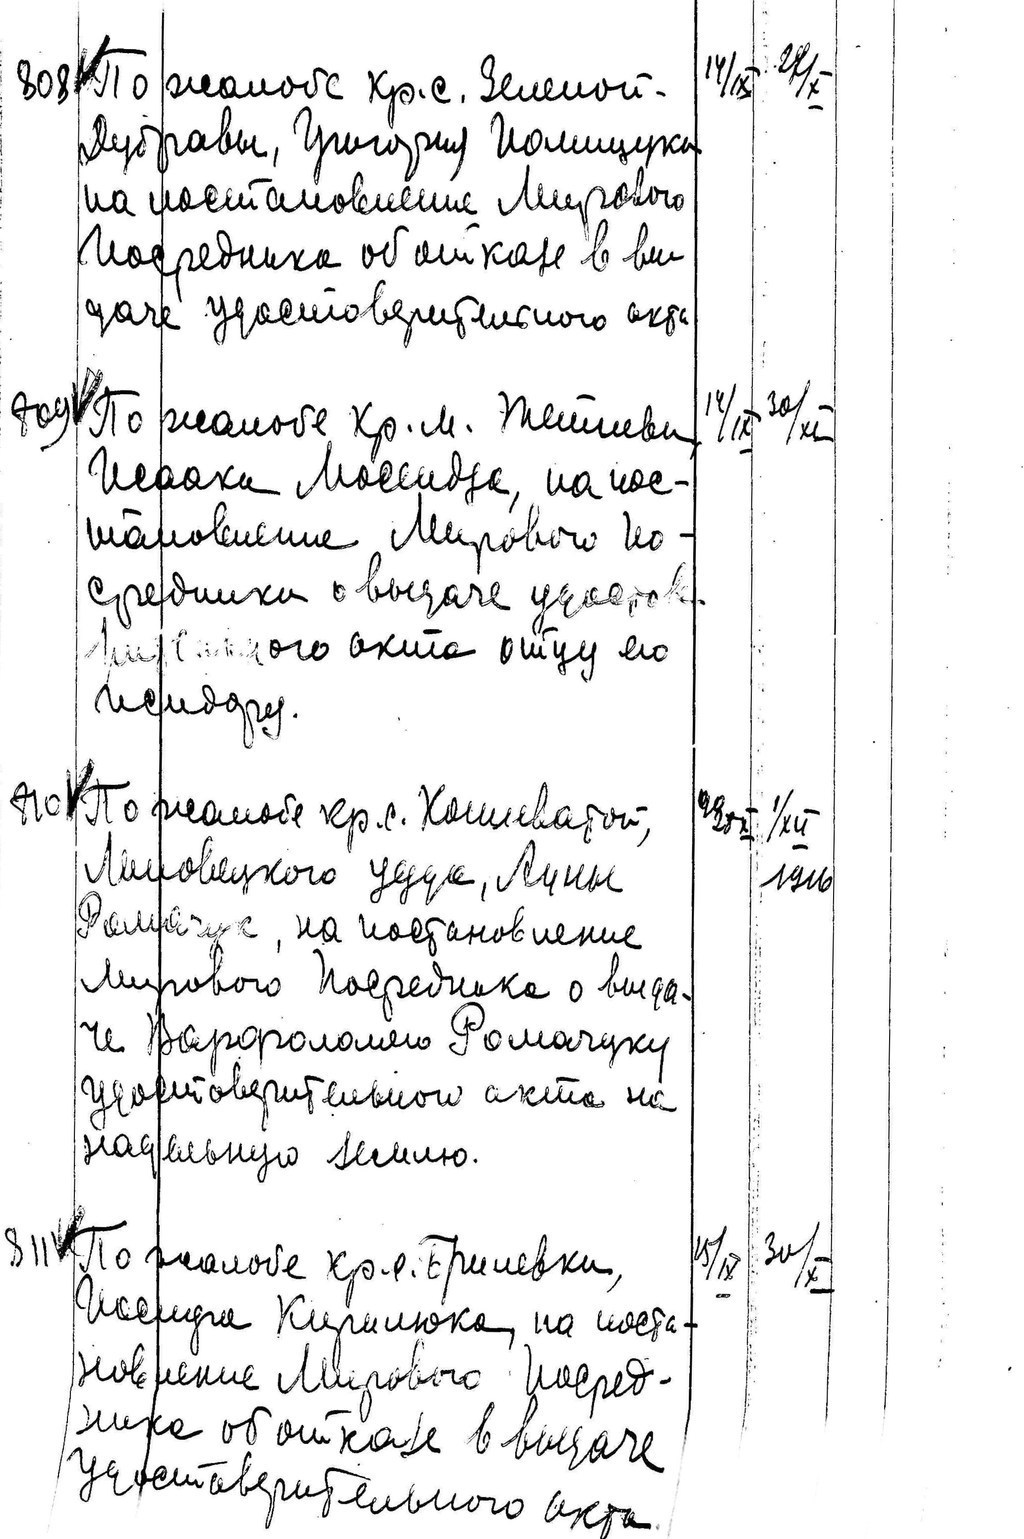 808 По жалобе кр. с. Зеленой- 14/IX 27/X
Дубравы, Григория Полищука
на постановление Мирового
Посредника об отказе в вы
даче удостоверительного акта
809 По жалобе кр. м. Жетневи, 14/IX 30/XI
Исаака, на пос-
тановление Мирового По-
средника о выдаче удостов-
ого акта отцу его
Исидору.
810 По жалобе кр. с. Кошеватой, 1/XII
Липовецкого уезда, Анны 1916
Романчук, на постановление
Мирового Посредника о выда-
че Варфоломею Романчуку
удостоверительного акта на
надельную землю.
811 По жалобе кр. с. Гриневки, 15/IX 30/XI
Иосифа Кирилюка, на поста-
новление Мирового Посред-
ника об отказе в выдаче
удостоверительного акта.